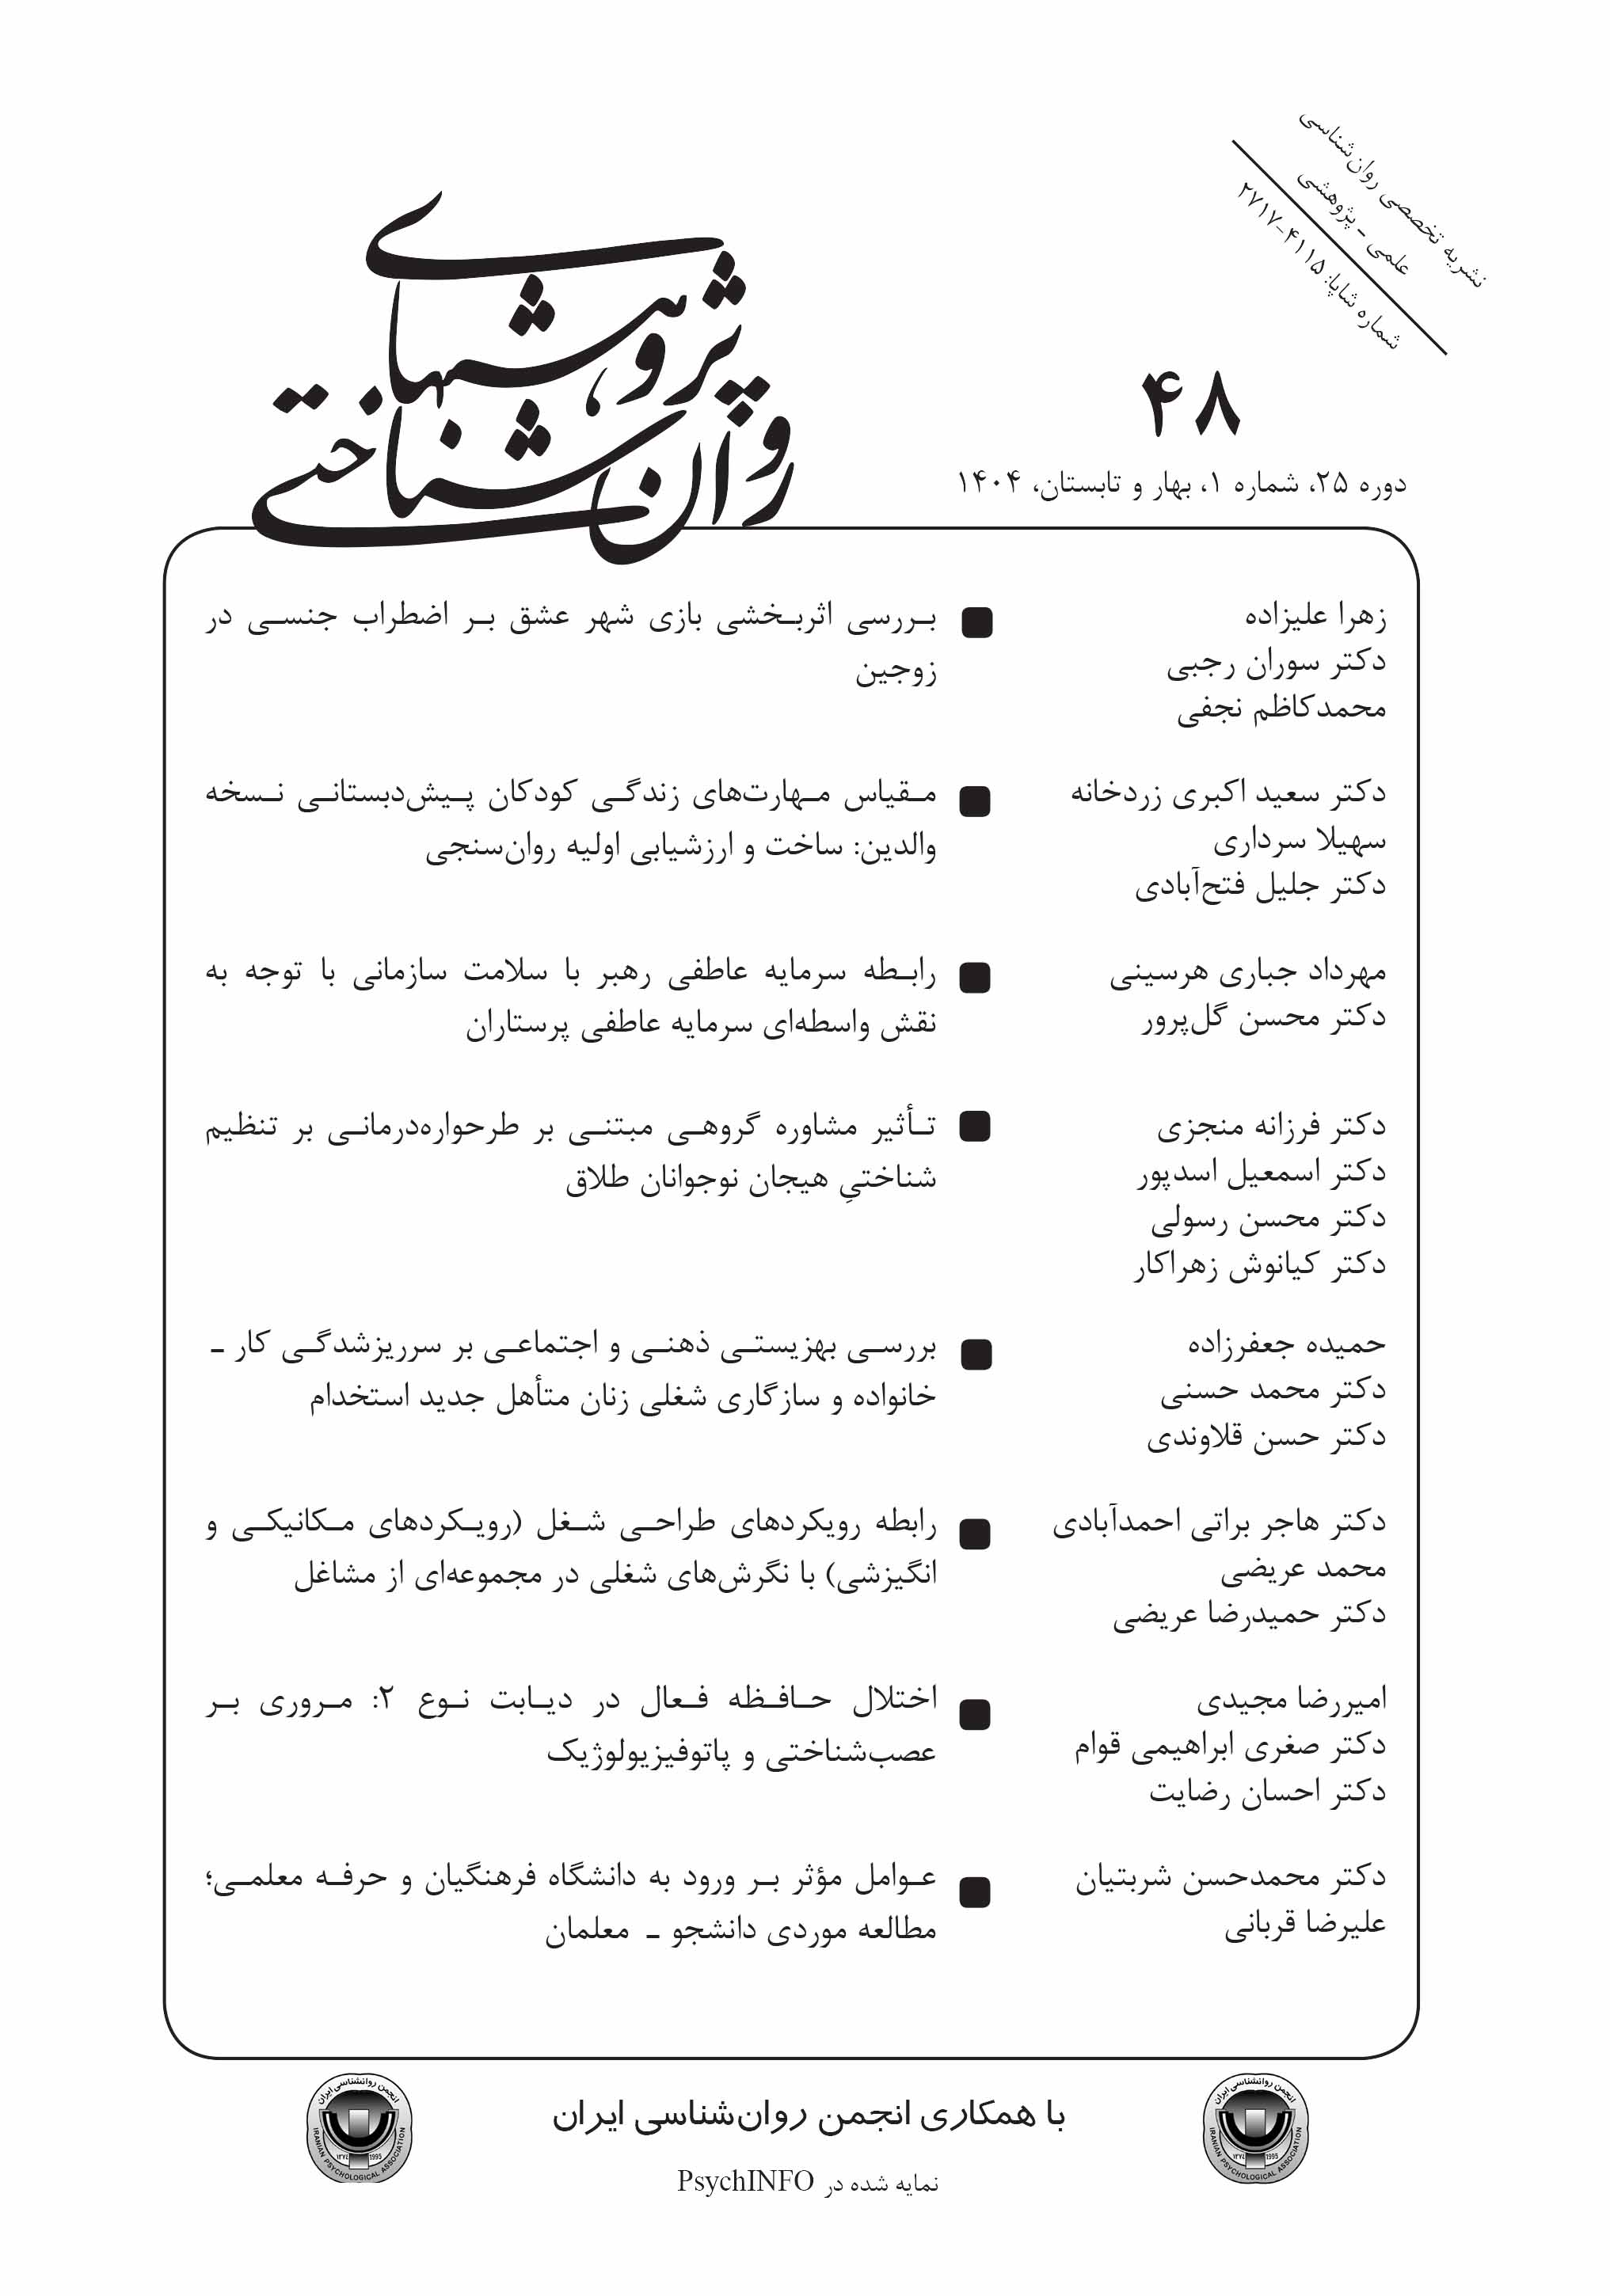 نشریه تخصصی روان‌شناسی
علمی ـ پژوهشی
شماره شاپا: ۴۱۱۵-۲۷۱۷
پژوهشهای
روان‌شناختی
۴۸
دوره ۲۵، شماره ۱، بهار و تابستان، ۱۴۰۴
زهرا علیزاده
دکتر سوران رجبی
محمدکاظم نجفی
بررسی اثربخشی بازی شهر عشق بر اضطراب جنسی در
زوجین
دکتر سعید اکبری زردخانه
سهیلا سرداری
دکتر جلیل فتح‌آبادی
مقیاس مهارت‌های زندگی کودکان پیش‌دبستانی نسخه
والدین: ساخت و ارزشیابی اولیه روان‌سنجی
مهرداد جباری هرسینی
دکتر محسن گل‌پرور
رابطه سرمایه عاطفی رهبر با سلامت سازمانی با توجه به
نقش واسطه‌ای سرمایه عاطفی پرستاران
دکتر فرزانه منجزی
دکتر اسمعیل اسدپور
دکتر محسن رسولی
دکتر کیانوش زهراکار
تأثیر مشاوره گروهی مبتنی بر طرحواره‌درمانی بر تنظیم
شناختیِ هیجان نوجوانان طلاق
حمیده جعفرزاده
دکتر محمد حسنی
دکتر حسن قلاوندی
بررسی بهزیستی ذهنی و اجتماعی بر سرریزشدگی کار ـ
خانواده و سازگاری شغلی زنان متأهل جدید استخدام
دکتر هاجر براتی احمدآبادی
محمد عریضی
دکتر حمیدرضا عریضی
رابطه رویکردهای طراحی شغل (رویکردهای مکانیکی و
انگیزشی) با نگرش‌های شغلی در مجموعه‌ای از مشاغل
امیررضا مجیدی
دکتر صغری ابراهیمی قوام
دکتر احسان رضایت
اختلال حافظه فعال در دیابت نوع ۲: مروری بر
عصب‌شناختی و پاتوفیزیولوژیک
دکتر محمدحسن شربتیان
علیرضا قربانی
عوامل مؤثر بر ورود به دانشگاه فرهنگیان و حرفه معلمی؛
مطالعه موردی دانشجو ـ معلمان
انجمن روانشناسی ایران
۱۳۷۴ 1995
IRANIAN PSYCHOLOGICAL ASSOCIATION
با همکاری انجمن روان‌شناسی ایران
نمایه شده در PsychINFO
انجمن روانشناسی ایران
۱۳۷۴ 1995
IRANIAN PSYCHOLOGICAL ASSOCIATION